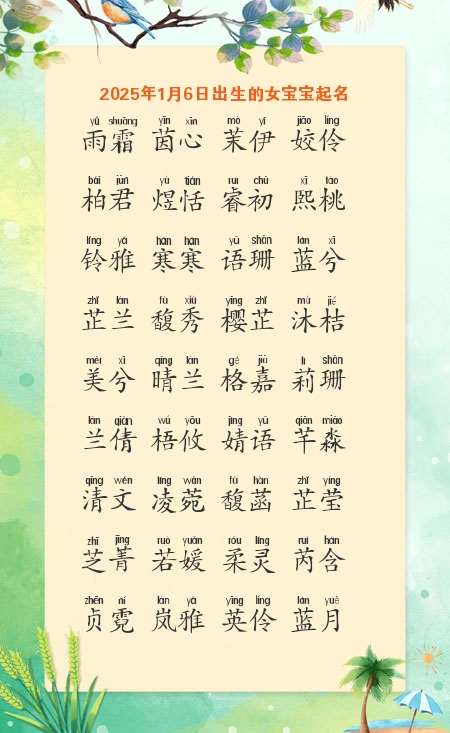 2025年1月6日出生的女宝宝起名
yǔ shuāng yīn xīn mò yī jiāo líng
雨霜 茵心 茉伊 姣伶
bǎi jūn yù tián ruì chū xī táo
柏君 煜恬 睿初 熙桃
líng yǎ hán hán yǔ shān lán xī
铃雅 寒寒 语珊 蓝兮
zhǐ lán fù xiù yīng zhǐ mù jié
芷兰 馥秀 樱芷 沐桔
měi xī qíng lán gé jiā lì shān
美兮 晴兰 格嘉 莉珊
lán qiàn wú yōu jìng yǔ qiān miǎo
兰倩 梧攸 婧语 芊淼
qīng wén líng wǎn fù hàn zhǐ yíng
清文 凌菀 馥菡 芷莹
zhī jīng ruò yuàn róu líng ruì hán
芝菁 若媛 柔灵 芮含
zhēn ní lán yǎ yīng líng lán yuè
贞霓 岚雅 英伶 蓝月